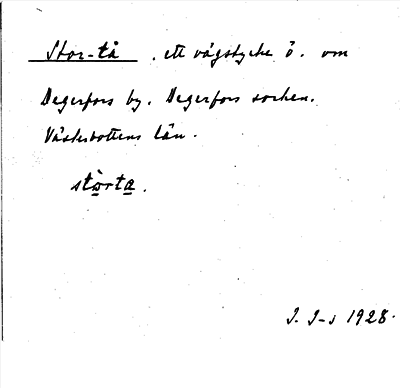 Stor-tå . ett vägstycke ö. om
Degerfors by. Degerfors socken.
Västerbottens län.
stòrta.
J. J-s 1928.